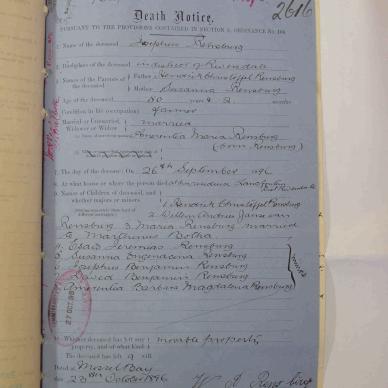 2616
Death Notice.
PURSUANT TO THE PROVISIONS CONTAINED IN SECTION OF ORDINANCE No. 104.
1. Name of the deceased Josephus Rensburg
2. Birthplace of the deceased district of Riversdale
3. Names of the Parents of the deceased Father Hendrik Christoffel Rensburg
Mother Susanna Rensburg
4. Age of the deceased 40 years 2 months
5. Condition in life (occupation) farmer
6. Married or Unmarried, Widower or Widow married
Maria Rensburg
(born Rensburg)
7. The day of the decease: On 26th September 1896
8. At what house or where the person died
9. Names of Children of deceased, and whether majors or minors
1. Hendrik Christoffel Rensburg
2. Willem Andries Janse van
Rensburg 3. Maria Rensburg married
to Marthinus Botha
4. Esaias Jeremias Rensburg
5. Susanna Rensburg
6. Josephus Benjamin Rensburg
7. David Benjamin Rensburg
Barbara Magdalena Rensburg
27 OCT 96
Whether deceased has left any property, and of what kind movable property
The deceased has left a will
Dated at Mossel Bay
the 23rd October 1896